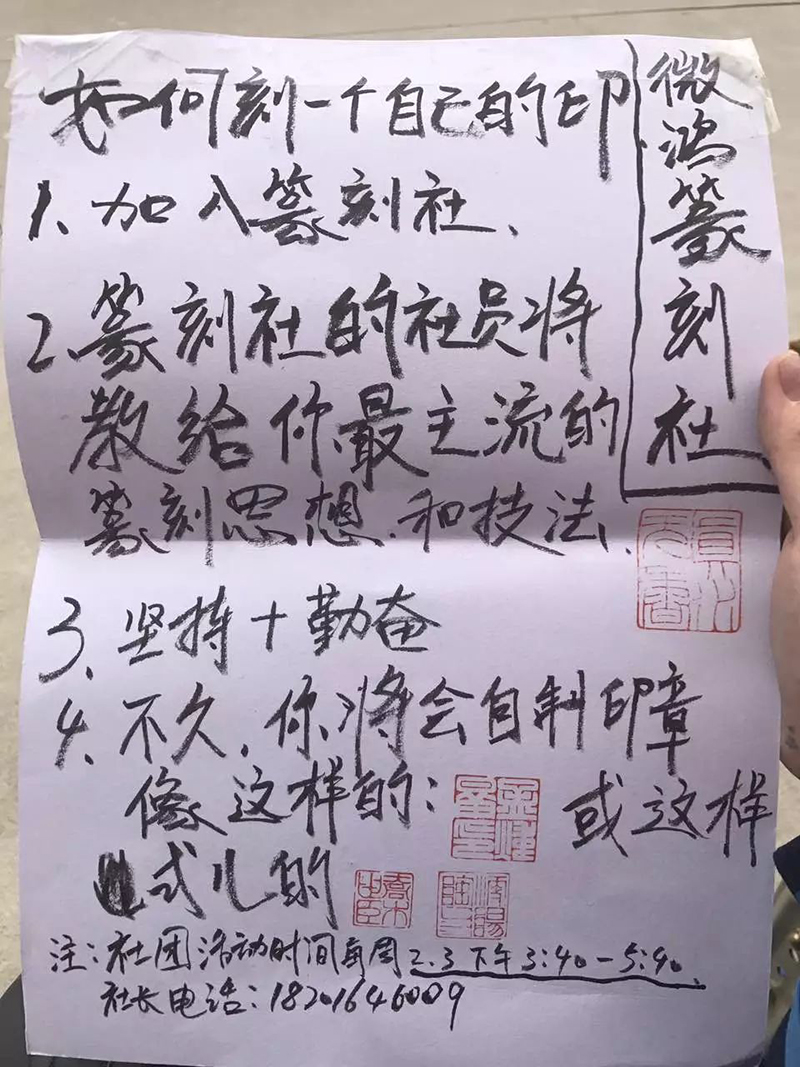 如何刻一个自己的印
1、加入篆刻社、
2、篆刻社的社员将
教给你最主流的
篆刻思想、和技法、
3、坚持+勤奋
4、不久，你将会自制印章
像这样的：或这样
式儿的
注：社团活动时间每周2.3下午3:40-5:40、
社长电话：18201646009
微鸿篆刻社